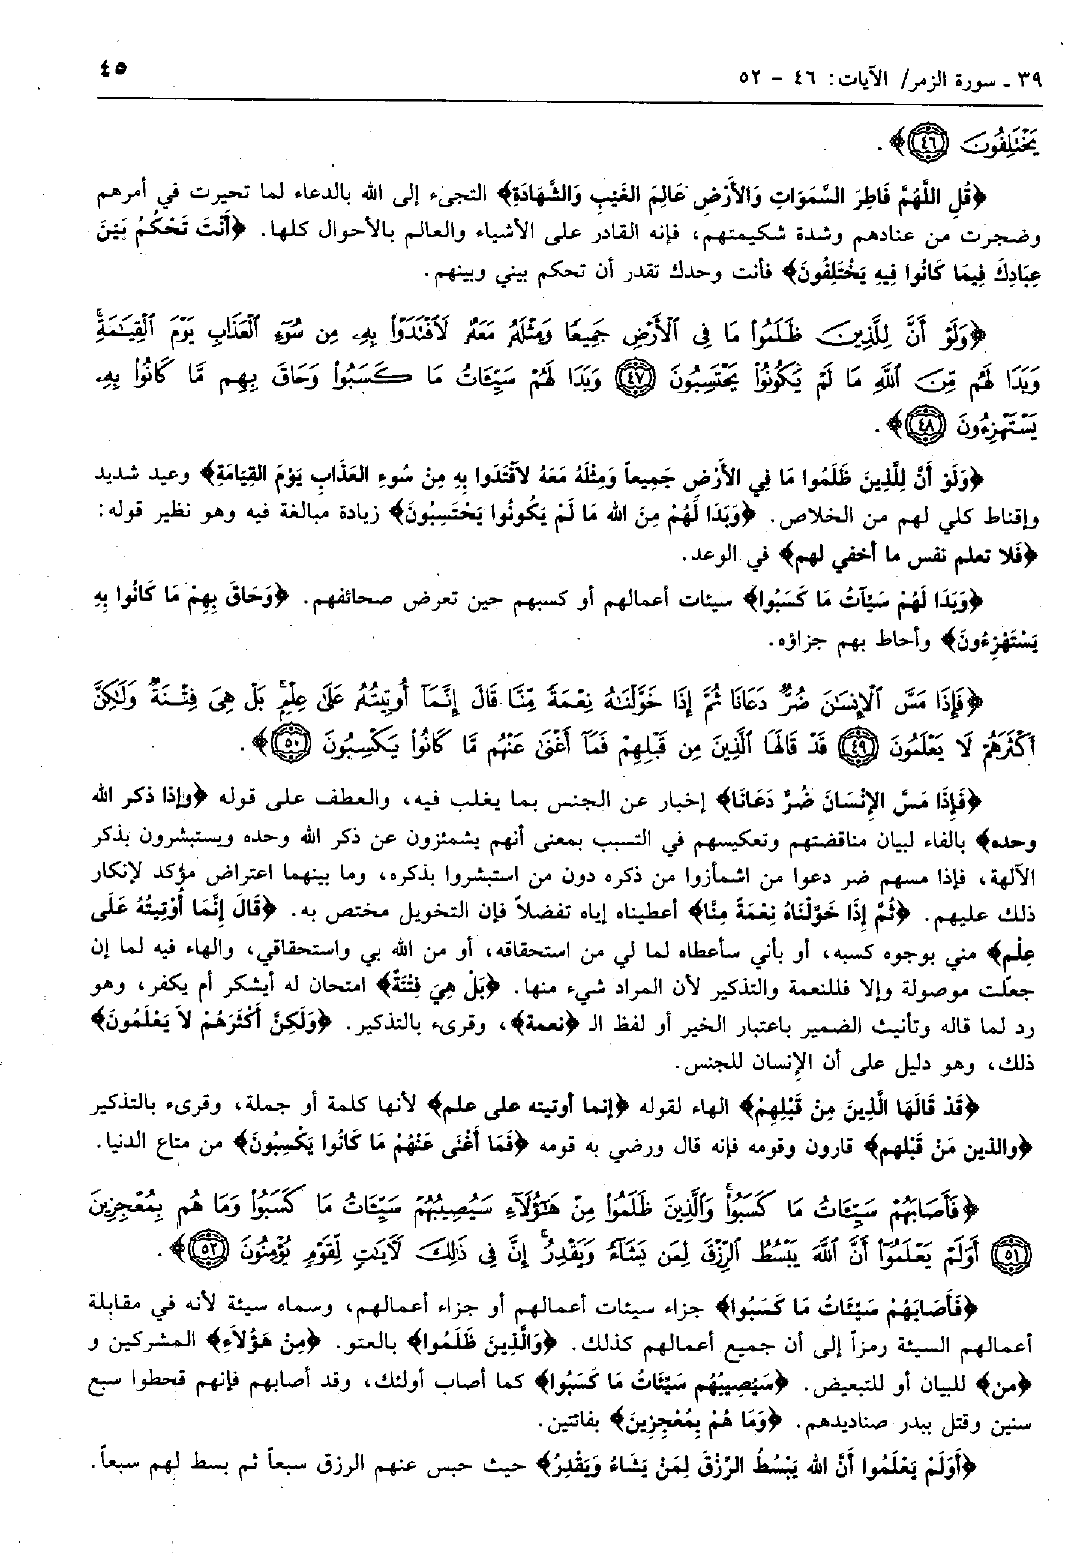 ٣٩ ـ سورة الزمر/ الآيات: ٤٦ - ٥٢ ٤٥
يَخْتَلِفُونَ ﴿٤٦﴾﴾.
﴿قُلِ اللَّهُمَّ فَاطِرَ السَّمَوَاتِ وَالأَرْضِ عَالِمَ الغَيْبِ وَالشَّهَادَةِ﴾ التجىء إلى الله بالدعاء لما تحيرت في أمرهم
وضجرت من عنادهم وشدة شكيمتهم، فإنه القادر على الأشياء والعالم بالأحوال كلها. ﴿أَنْتَ تَحْكُمُ بَيْنَ
عِبَادِكَ فِيمَا كَانُوا فِيهِ يَخْتَلِفُونَ﴾ فأنت وحدك تقدر أن تحكم بيني وبينهم.
﴿وَلَوْ أَنَّ لِلَّذِينَ ظَلَمُواْ مَا فِي ٱلْأَرْضِ جَمِيعًا وَمِثْلَهُۥ مَعَهُۥ لَٱفْتَدَوْاْ بِهِۦ مِن سُوٓءِ ٱلْعَذَابِ يَوْمَ ٱلْقِيَٰمَةِۚ
وَبَدَا لَهُم مِّنَ ٱللَّهِ مَا لَمْ يَكُونُواْ يَحْتَسِبُونَ ﴿٤٧﴾ وَبَدَا لَهُمْ سَيِّـَٔاتُ مَا كَسَبُواْ وَحَاقَ بِهِم مَّا كَانُواْ بِهِۦ
يَسْتَهْزِءُونَ ﴿٤٨﴾﴾.
﴿وَلَوْ أَنَّ لِلَّذِينَ ظَلَمُوا مَا فِي الأَرْضِ جَمِيعاً وَمِثْلَهُ مَعَهُ لاَفْتَدَوا بِهِ مِنْ سُوءِ العَذَابِ يَوْمَ القِيَامَةِ﴾ وعيد شديد
وإقناط كلي لهم من الخلاص. ﴿وَبَدَا لَهُمْ مِنَ الله مَا لَمْ يَكُونُوا يَحْتَسِبُونَ﴾ زيادة مبالغة فيه وهو نظير قوله:
﴿فلا تعلم نفس ما أخفي لهم﴾ في الوعد.
﴿وَبَدَا لَهُمْ سَيِّآتُ مَا كَسَبُوا﴾ سيئات أعمالهم أو كسبهم حين تعرض صحائفهم. ﴿وَحَاقَ بِهِمْ مَا كَانُوا بِهِ
يَسْتَهْزِءُونَ﴾ وأحاط بهم جزاؤه.
﴿فَإِذَا مَسَّ ٱلْإِنسَٰنَ ضُرٌّ دَعَانَا ثُمَّ إِذَا خَوَّلْنَٰهُ نِعْمَةً مِّنَّا قَالَ إِنَّمَآ أُوتِيتُهُۥ عَلَىٰ عِلْمٍۚ بَلْ هِيَ فِتْنَةٌ وَلَٰكِنَّ
أَكْثَرَهُمْ لَا يَعْلَمُونَ ﴿٤٩﴾ قَدْ قَالَهَا ٱلَّذِينَ مِن قَبْلِهِمْ فَمَآ أَغْنَىٰ عَنْهُم مَّا كَانُواْ يَكْسِبُونَ ﴿٥٠﴾﴾.
﴿فَإِذَا مَسَّ الإِنْسَانَ ضُرٌّ دَعَانَا﴾ إخبار عن الجنس بما يغلب فيه، والعطف على قوله ﴿وإذا ذكر الله
وحده﴾ بالفاء لبيان مناقضتهم وتعكيسهم في التسبب بمعنى أنهم يشمئزون عن ذكر الله وحده ويستبشرون بذكر
الآلهة، فإذا مسهم ضر دعوا من اشمأزوا من ذكره دون من استبشروا بذكره، وما بينهما اعتراض مؤكد لإنكار
ذلك عليهم. ﴿ثُمَّ إِذَا خَوَّلْنَاهُ نِعْمَةً مِنَّا﴾ أعطيناه إياه تفضلاً فإن التخويل مختص به. ﴿قَالَ إِنَّمَا أُوْتِيتُهُ عَلَى
عِلْمٍ﴾ مني بوجوه كسبه، أو بأني سأعطاه لما لي من استحقاقه، أو من الله بي واستحقاقي، والهاء فيه لما إن
جعلت موصولة وإلا فللنعمة والتذكير لأن المراد شيء منها. ﴿بَلْ هِيَ فِتْنَةٌ﴾ امتحان له أيشكر أم يكفر، وهو
رد لما قاله وتأنيث الضمير باعتبار الخير أو لفظ الـ ﴿نعمة﴾، وقرىء بالتذكير. ﴿وَلَكِنَّ أَكْثَرَهُمْ لاَ يَعْلَمُونَ﴾
ذلك، وهو دليل على أن الإنسان للجنس.
﴿قَدْ قَالَهَا الَّذِينَ مِنْ قَبْلِهِمْ﴾ الهاء لقوله ﴿إنما أوتيته على علم﴾ لأنها كلمة أو جملة، وقرىء بالتذكير
﴿والذين مَنْ قَبْلهم﴾ قارون وقومه فإنه قال ورضي به قومه ﴿فَمَا أَغْنَى عَنْهُمْ مَا كَانُوا يَكْسِبُونَ﴾ من متاع الدنيا.
﴿فَأَصَابَهُمْ سَيِّـَٔاتُ مَا كَسَبُواْۚ وَٱلَّذِينَ ظَلَمُواْ مِنْ هَٰٓؤُلَآءِ سَيُصِيبُهُمْ سَيِّـَٔاتُ مَا كَسَبُواْ وَمَا هُم بِمُعْجِزِينَ
﴿٥١﴾ أَوَلَمْ يَعْلَمُوٓاْ أَنَّ ٱللَّهَ يَبْسُطُ ٱلرِّزْقَ لِمَن يَشَآءُ وَيَقْدِرُۚ إِنَّ فِي ذَٰلِكَ لَءَايَٰتٍ لِّقَوْمٍ يُؤْمِنُونَ ﴿٥٢﴾﴾.
﴿فَأَصَابَهُمْ سَيِّئَاتُ مَا كَسَبُوا﴾ جزاء سيئات أعمالهم أو جزاء أعمالهم، وسماه سيئة لأنه في مقابلة
أعمالهم السيئة رمزاً إلى أن جميع أعمالهم كذلك. ﴿وَالَّذِينَ ظَلَمُوا﴾ بالعتو. ﴿مِنْ هَؤُلاَءِ﴾ المشركين و
﴿من﴾ للبيان أو للتبعيض. ﴿سَيُصِيبُهُم سَيِّئَاتُ مَا كَسَبُوا﴾ كما أصاب أولئك، وقد أصابهم فإنهم قحطوا سبع
سنين وقتل ببدر صناديدهم. ﴿وَمَا هُمْ بِمُعْجِزِينَ﴾ بفائتين.
﴿أَوَلَمْ يَعْلَمُوا أَنَّ الله يَبْسُطُ الرِّزْقَ لِمَنْ يَشَاءُ وَيَقْدِرُ﴾ حيث حبس عنهم الرزق سبعاً ثم بسط لهم سبعاً.